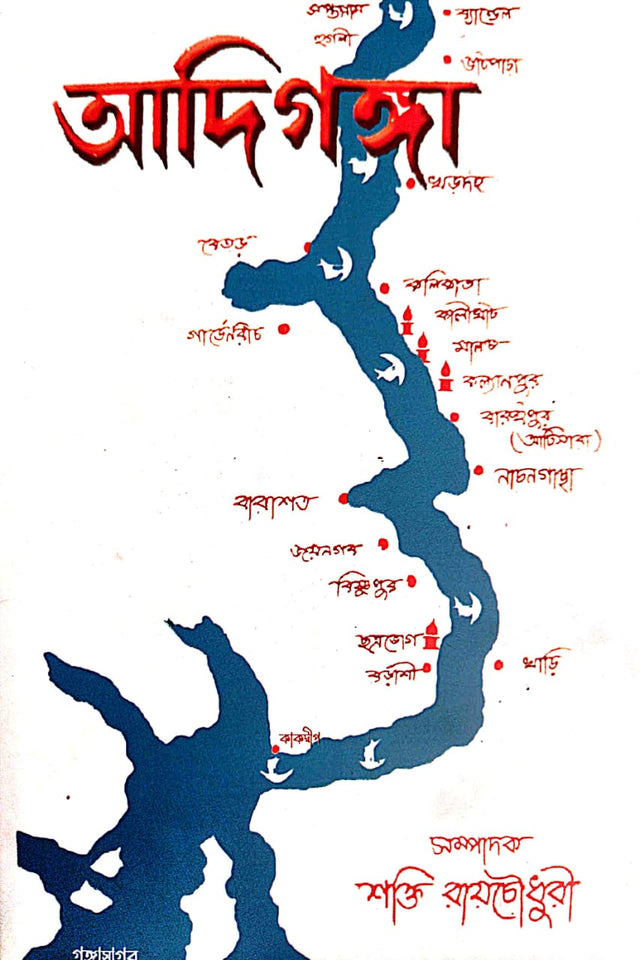 সপ্তগ্রাম
ব্যান্ডেল
হুগলী
ভাটপাড়া
আদিগঙ্গা
খড়দহ
বেতড়
কলিকাতা
কালীঘাট
গার্ডেনরীচ
মালঞ্চ
কল্যানপুর
বারুইপুর
(আটিসারা)
নাচনগাছা
বারাশত
জয়নগর
বিষ্ণুপুর
ছত্রভোগ
বড়াশী
খাড়ি
কাকদ্বীপ
সম্পাদক
শক্তি রায়চৌধুরী
গঙ্গাসাগর